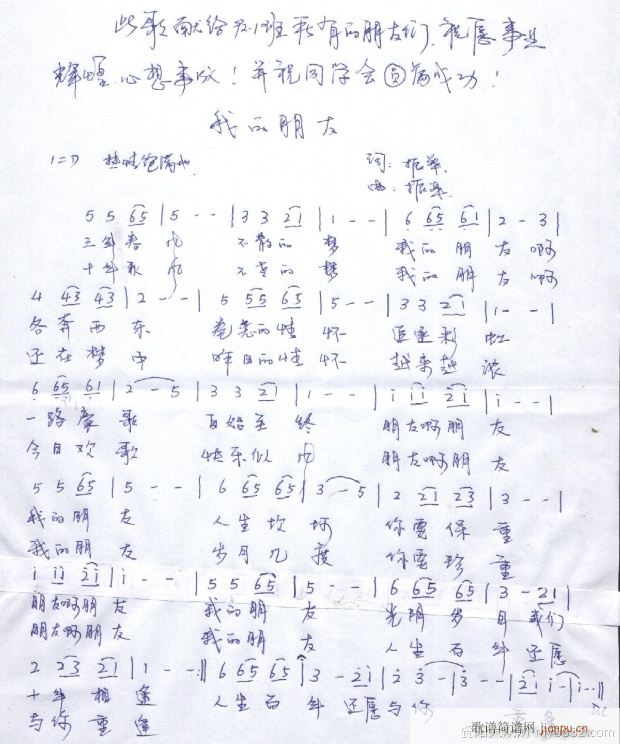 此歌献给九1班所有的朋友们,祝愿事业
辉煌,心想事成!并祝同学会圆满成功!
我的朋友
1=D 热情饱满地
词:振华
曲:振华
5 5 65 | 5 - - | 3 3 21 | 1 - - | 6 65 61 | 2 - 3 |
三年春风 不散的梦 我的朋友啊
十年歌风 不老的梦 我的朋友啊
4 43 43 | 2 - - | 5 55 65 | 5 - - | 3 3 21 | 1 - - |
各奔西东 卷恋的情怀 追逐彩虹
还在梦中 昨日的情怀 越来越浓
6 65 61 | 2 - 5 | 3 3 21 | 1 - - | i ii 2i | i - - |
一路豪歌 自始至终 朋友啊朋友
今日欢歌 快乐似风 朋友啊朋友
5 5 65 | 5 - - | 6 65 65 | 3 - 5 | 2 21 23 | 3 - - |
我的朋友 人生坎坷 你要保重
我的朋友 岁月几度 你要珍重
i ii 2i | i - - | 5 5 65 | 5 - - | 6 65 65 | 3 - 21 |
朋友啊朋友 我的朋友 光阴岁月我们
朋友啊朋友 我的朋友 人生百年还愿
2 23 21 | 1 - - :|| 6 65 65 | 3 - 2i | 2 3 - | 3 - - | 2i i - | i - - ||
十年相逢 人生百年还愿与你
与你重逢 重逢
D.C
歌谱简谱网 jianpu.cn